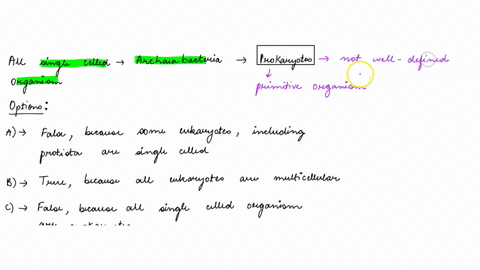 All single celled → Archaea bacteria → Prokaryotes → not well-defined
organism
↓
primitive organism
Options:
A) → False, because some eukaryotes, including
protista are single celled
B) → True, because all eukaryotes are multicellular
C) → False, because all single celled organism
are